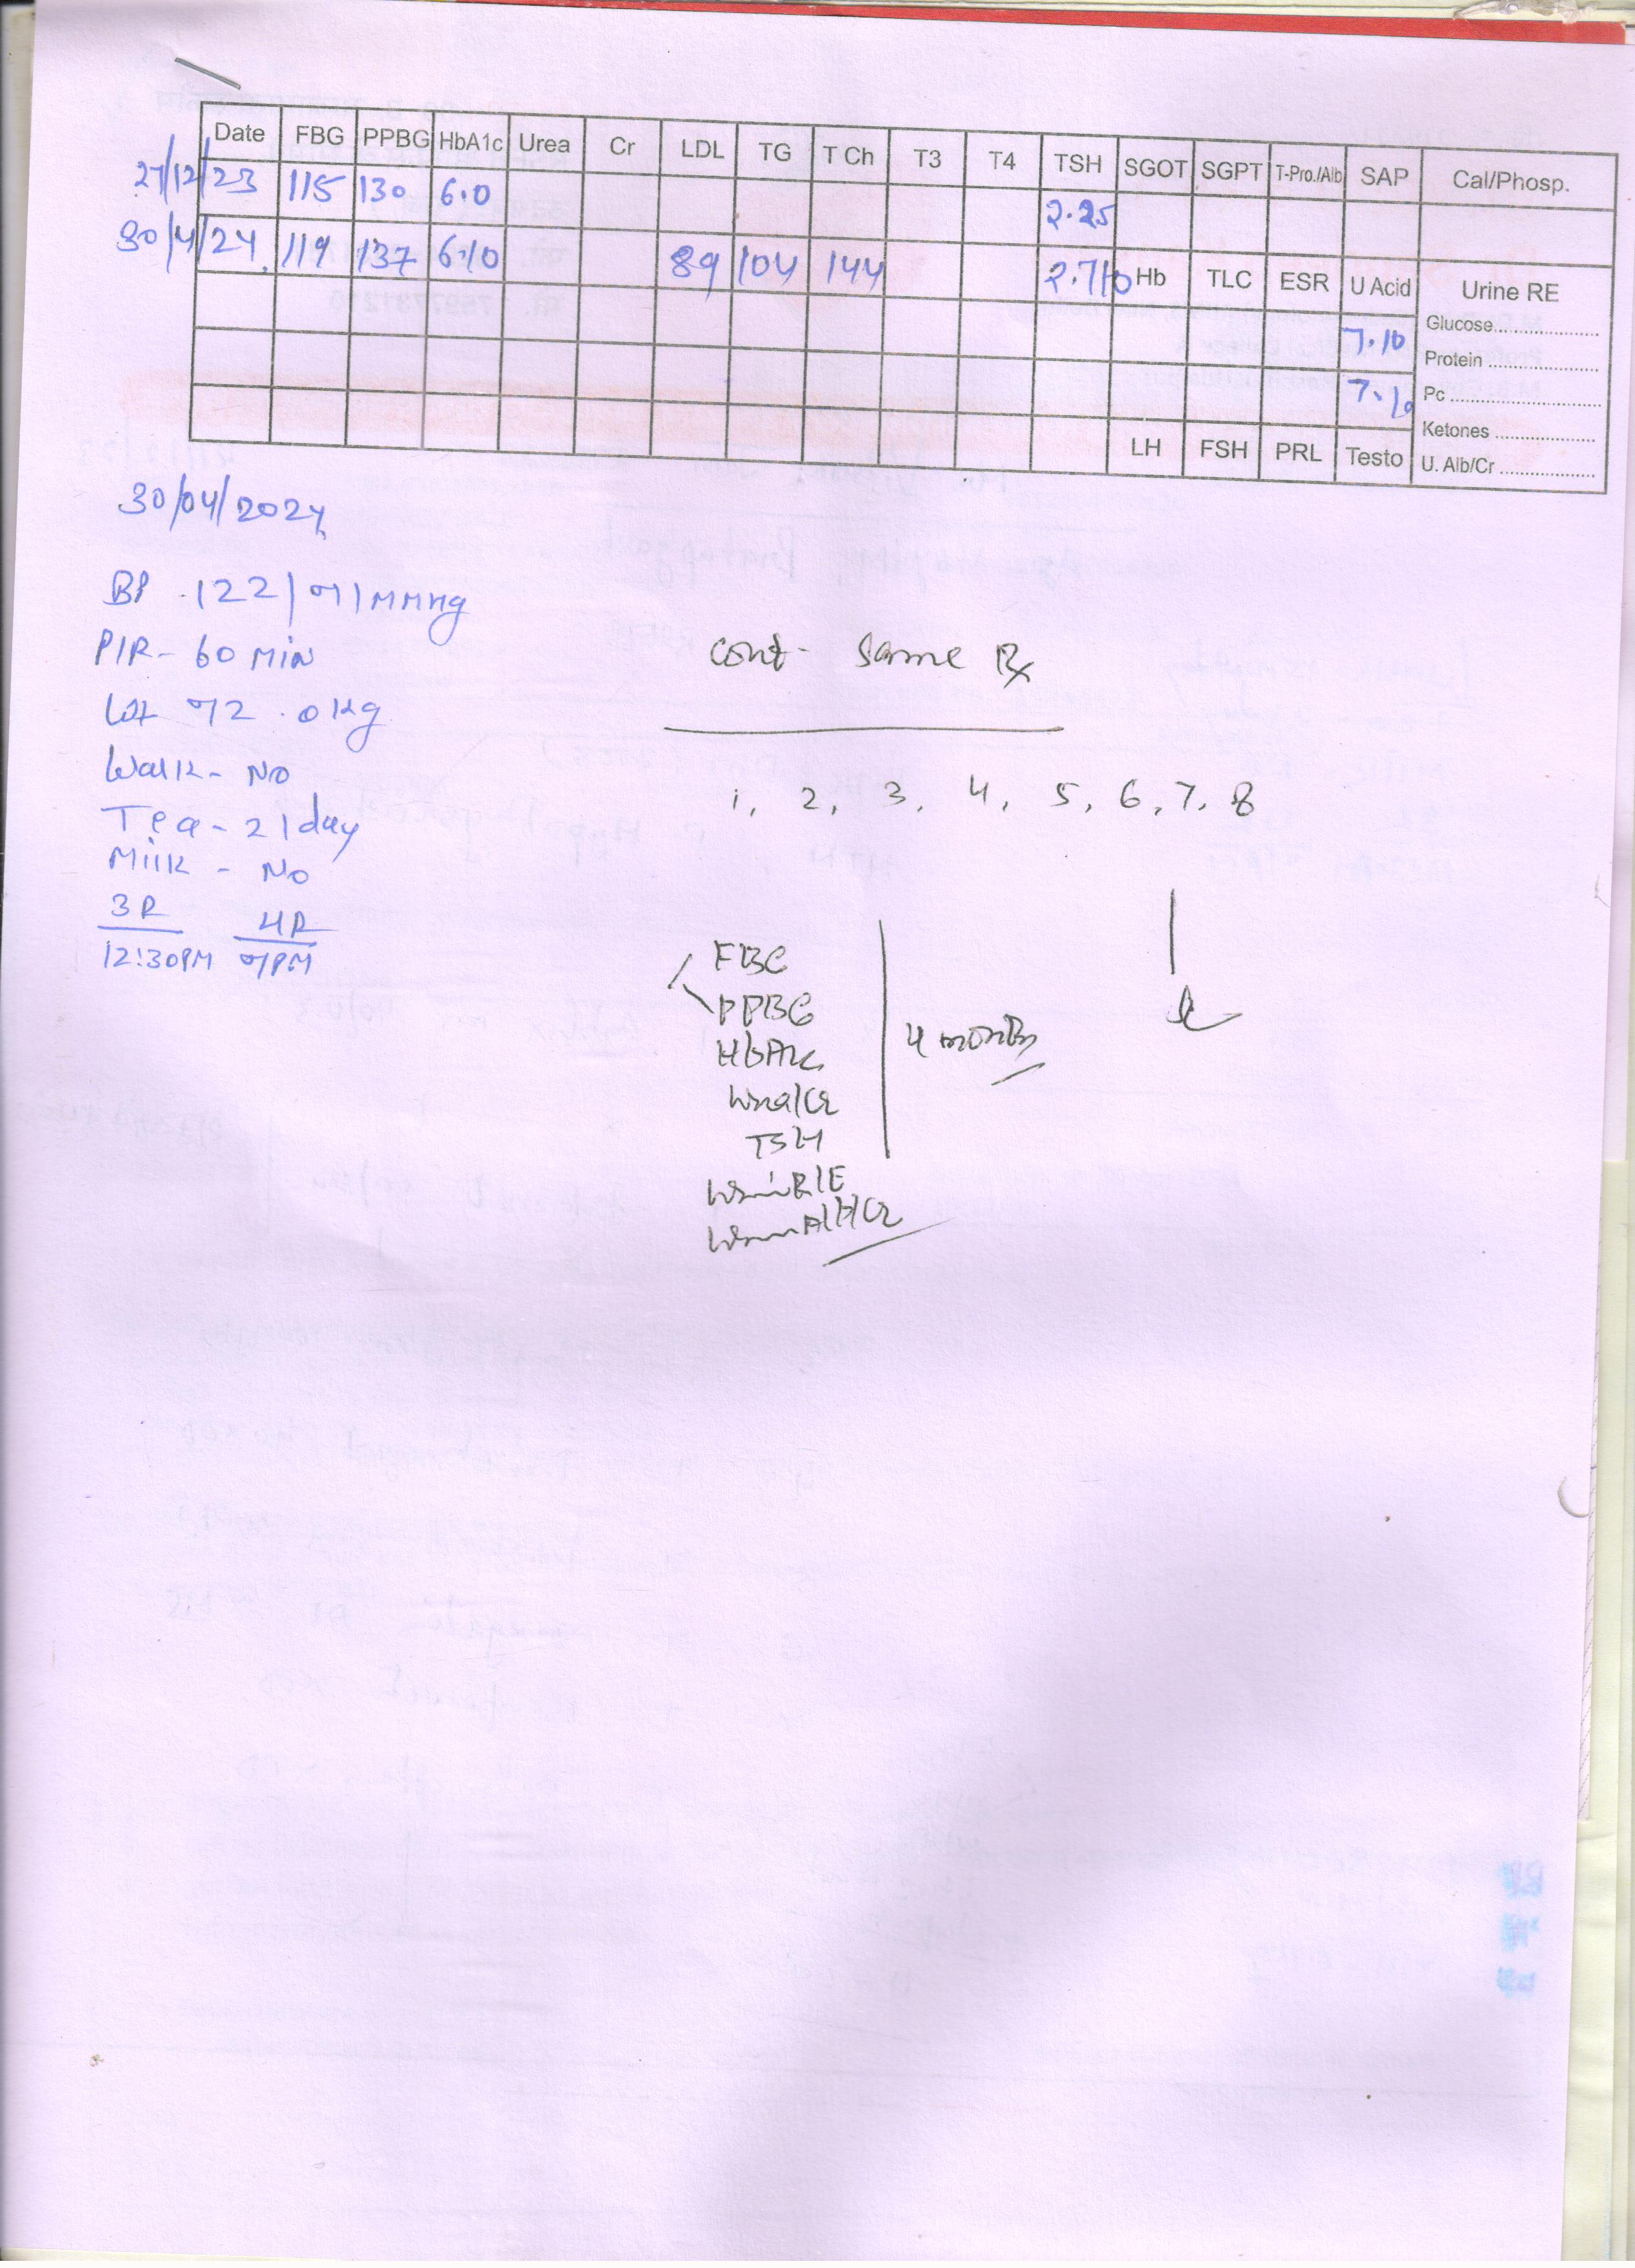 Date FBG PPBG HbA1c Urea Cr LDL TG T Ch T3 T4 TSH SGOT SGPT T-Pro./Alb SAP Cal/Phosp.
27/12/23 115 130 6.0 2.25
30/4/24 119 137 6.10 89 104 144 2.710
Hb TLC ESR U Acid Urine RE
Glucose
7.10
Protein
7.10
Pc
Ketones
LH FSH PRL Testo
U. Alb/Cr
30/04/2024
BP - 122/71 MMHg
P/R - 60 MIN
Wt 72.0kg
Walk - NO
Tea - 2/day
Milk - NO
3R 4R
12:30PM 7PM
cont- Same Rx
1, 2, 3, 4, 5, 6, 7, 8
FBG
PPBG
HbA1c
4 months
Urea/Cr
TSH
Urine R/E
Urine Alb/Cr